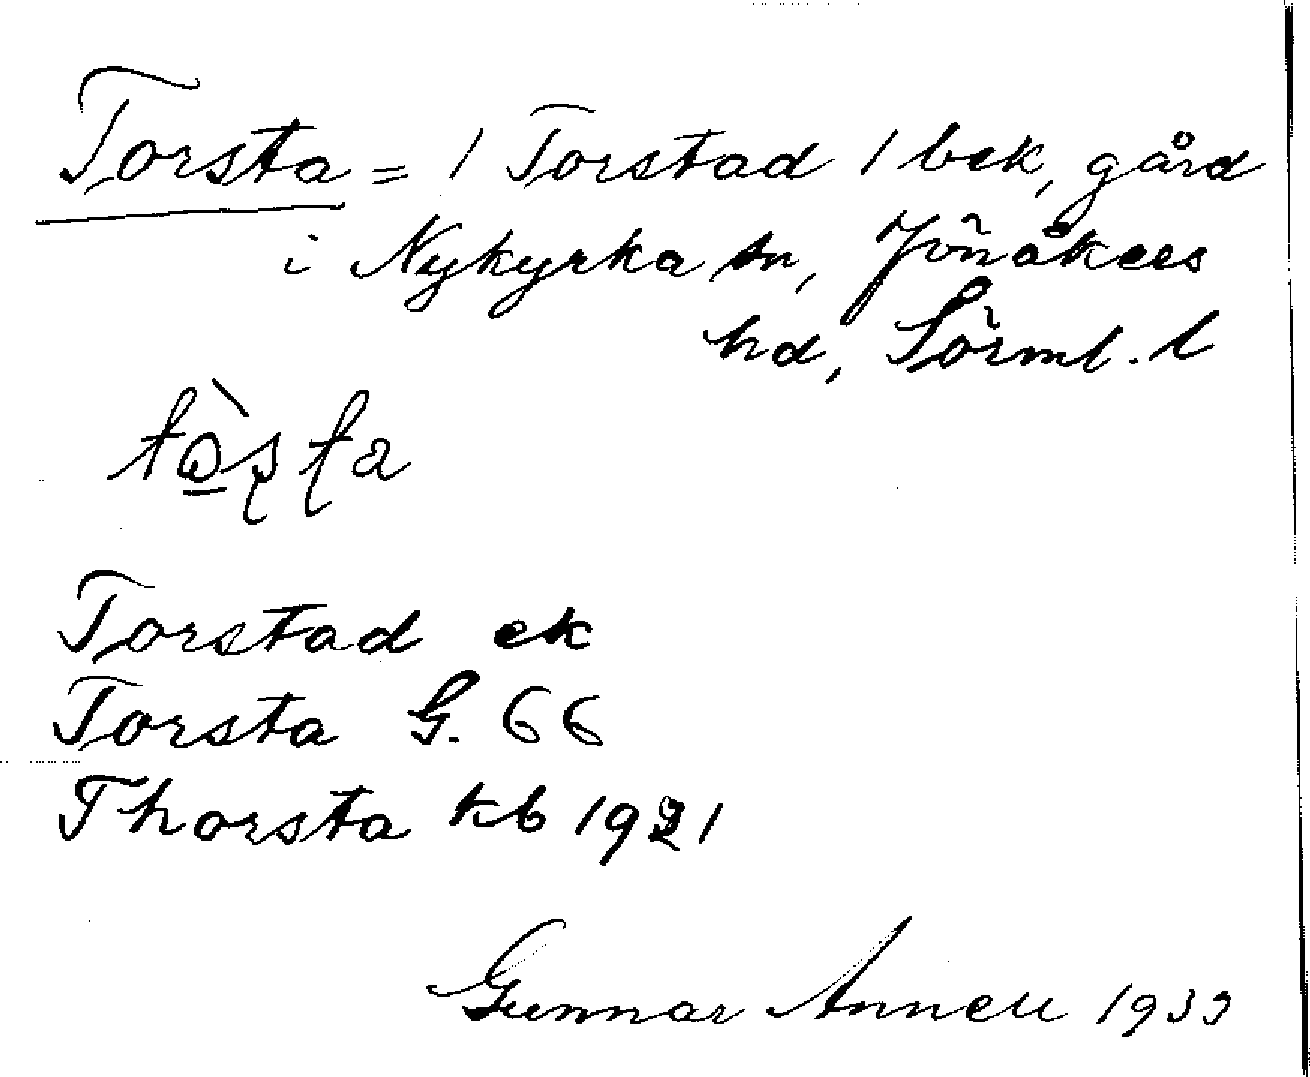 Torsta = / Torstad / bek, gård
i Nykyrka sn, Jönåkers
hd, Sörml. l
Torstad ek
Torsta G. 66
Thorsta kb 1921
Gunnar Annell 1933